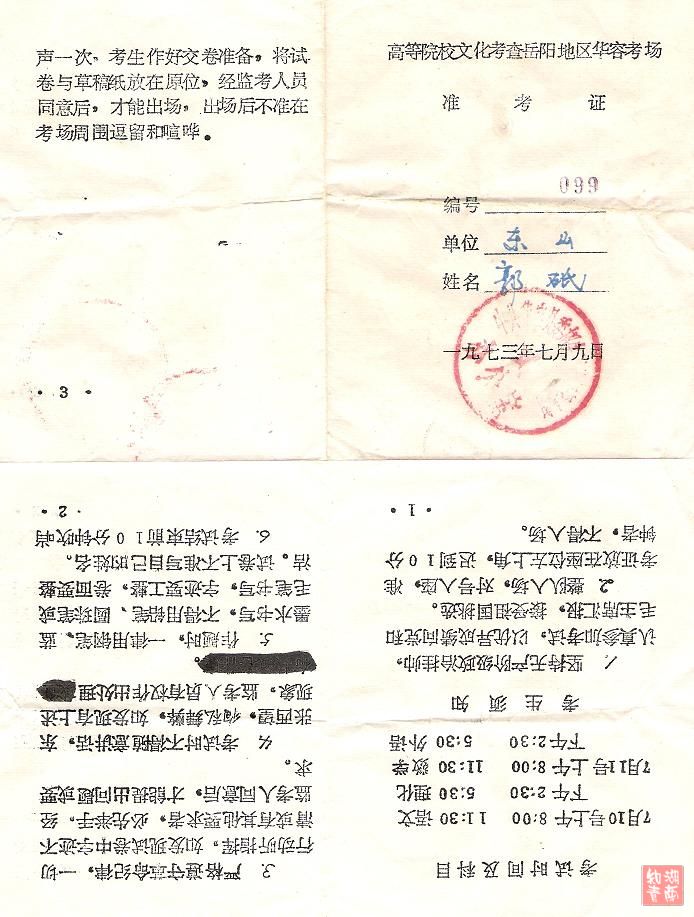 高等院校文化考查岳阳地区华容考场
准考证
编号 099
单位 东山
姓名 郭砥
一九七三年七月九日
考试时间及科目
7月10号上午8:00 11:30 语文
下午2:30 5:30 理化
7月11号上午8:00 11:30 数学
下午2:30 5:30 外语
考生须知
1. 坚持无产阶级政治挂帅,
认真参加考试,以优异成绩向党和
毛主席汇报,接受祖国挑选。
2. 整队入场,对号入座,准
考证放在座位左上角,迟到10分
钟者,不得入场。
·1·
3. 严格遵守革命纪律,一切
行动听指挥。如发现试卷中字迹不
清或有其他要求者,必先举手,经
监考人同意后,才能提出问题或要
求。
4. 考试时不得随意讲话,东
张西望,徇私舞弊,如发现有上述
现象,监考人员有权作出处理
。
5. 作题时,一律用钢笔、蓝
墨水书写,不得用铅笔、圆珠笔或
毛笔书写,字迹要工整,卷面要整
洁。试卷上不准写自己的姓名。
6. 考试结束前10分钟吹哨
·2·
声一次,考生作好交卷准备,将试
卷与草稿纸放在原位,经监考人员
同意后,才能出场,出场后不准在
考场周围逗留和喧哗。
·3·